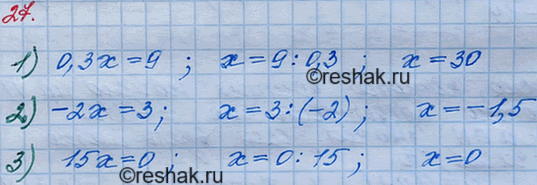 27.
1) 0,3x = 9 ; x = 9 : 0,3 ; x = 30
©reshak.ru
2) -2x = 3 ; x = 3 : (-2) ; x = -1,5
3) 15x = 0 ; x = 0 : 15 ; x = 0
©reshak.ru